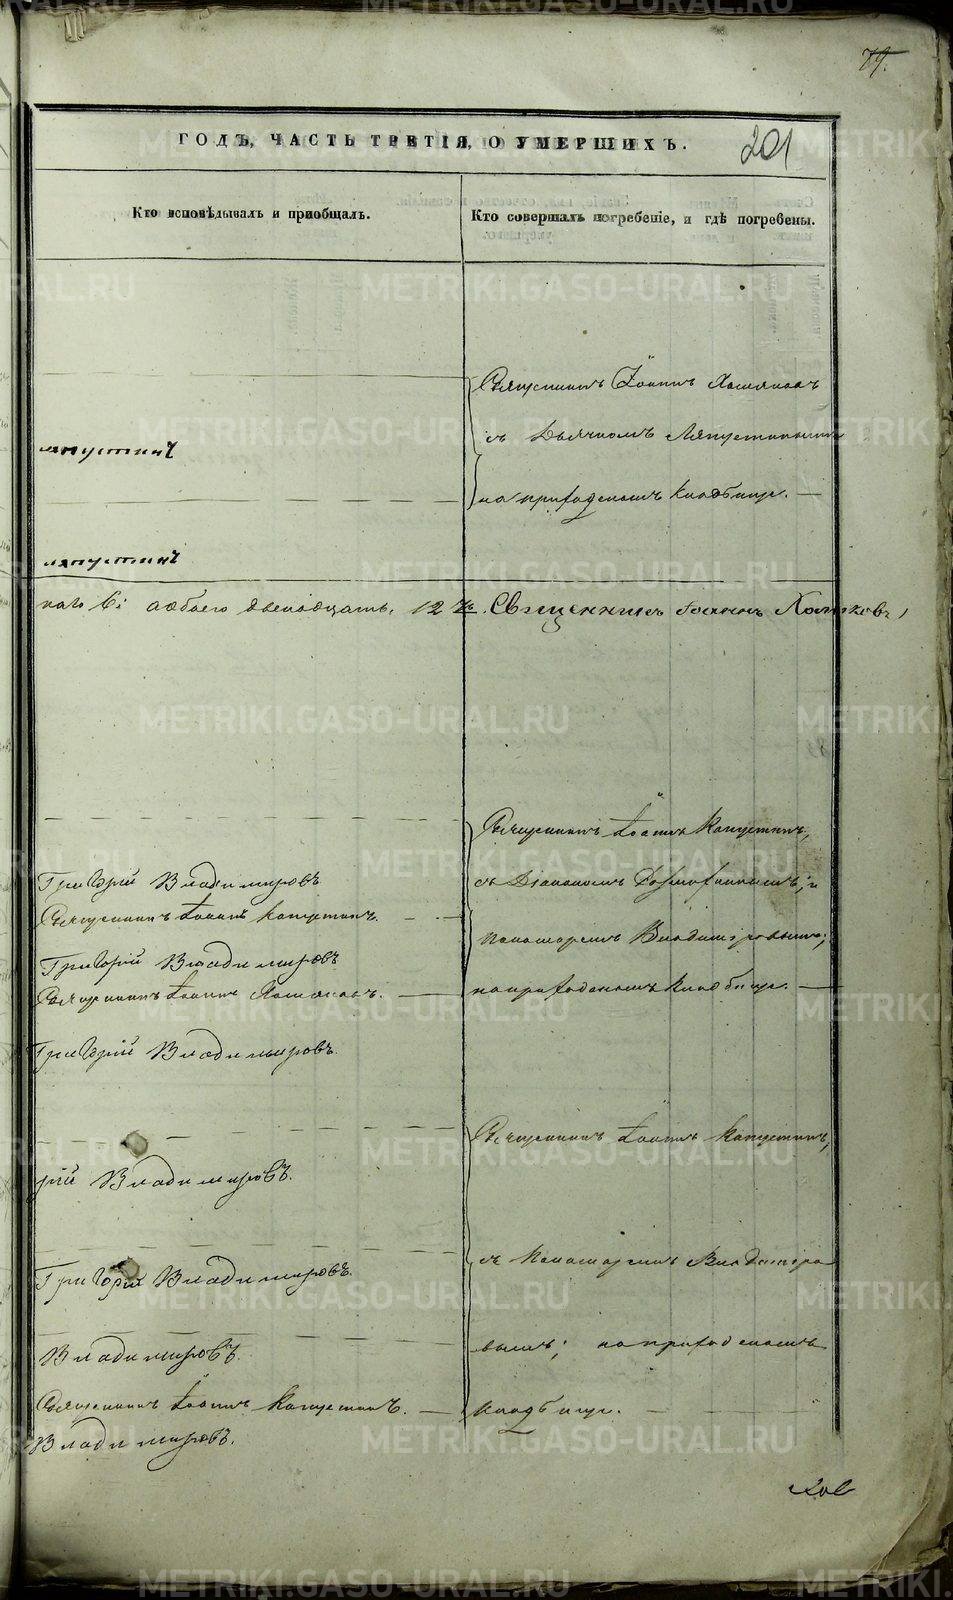 79.
ГОДЪ, ЧАСТЬ ТРЕТІЯ, О УМЕРШИХЪ.
201
Кто исповѣдывалъ и пріобщалъ.
Кто совершалъ погребеніе, и гдѣ погребены.
Священникъ Іоаннъ Хомяковъ
съ Дьячкомъ Ляпустинымъ
на приходскомъ кладбище.
ляпустинъ
ляпустинъ
обоего двенадцать. 12
Священникъ Іоаннъ Хомяковъ,
Священникъ Іоаннъ Капустинъ,
съ Діакономъ
Пономаремъ Владимировымъ,
на приходскомъ кладбище.
Григорій Владимировъ
Священникъ Іоаннъ Капустинъ.
Григорій Владимировъ
Священникъ Іоаннъ Хомяковъ.
Григорій Владимировъ.
Священникъ Іоаннъ Капустинъ,
съ Пономаремъ Владимиро
вымъ; на приходскомъ
кладбище.
рій Владимировъ.
Григорій Владимировъ.
Владимировъ.
Священникъ Іоаннъ Капустинъ.
Владимировъ.
METRIKI.GASO-URAL.RU